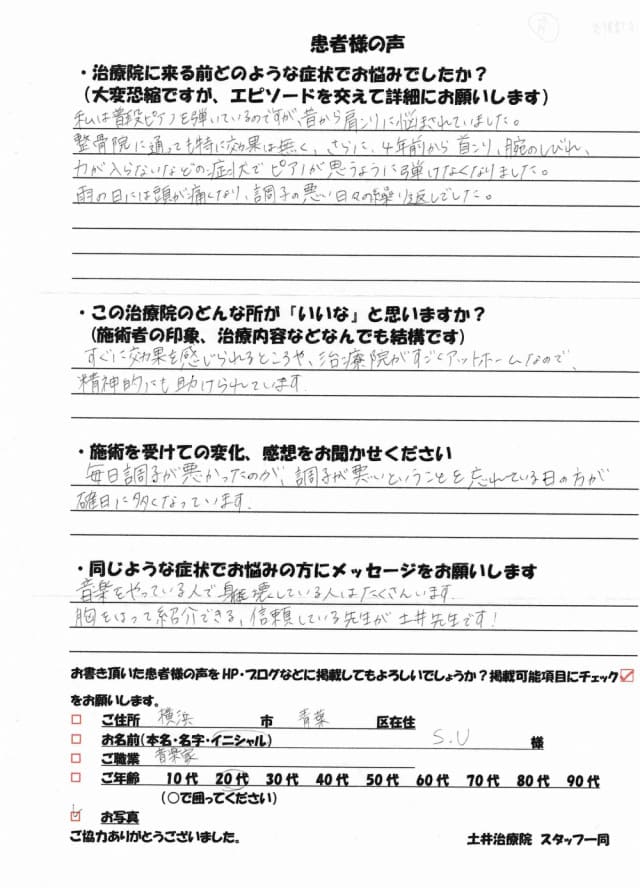 患者様の声
・治療院に来る前どのような症状でお悩みでしたか？
（大変恐縮ですが、エピソードを交えて詳細にお願いします）
私は普段ピアノを弾いているのですが、昔から肩こりに悩まされていました。
整骨院に通っても特に効果は無く、さらに、4年前から首こり、腕のしびれ、
力が入らないなどの症状でピアノが思うように弾けなくなりました。
雨の日には頭が痛くなり、調子の悪い日々の繰り返しでした。
・この治療院のどんな所が「いいな」と思いますか？
（施術者の印象、治療内容などなんでも結構です）
すぐに効果を感じられるところや、治療院がすごくアットホームなので、
精神的にも助けられています。
・施術を受けての変化、感想をお聞かせください
毎日調子が悪かったのが、調子が悪いということを忘れている日の方が
確日に多くなっています。
・同じような症状でお悩みの方にメッセージをお願いします
音楽をやっている人で身体壊している人はたくさんいます。
胸をはって紹介できる、信頼している先生が土井先生です！
お書き頂いた患者様の声をHP・ブログなどに掲載してもよろしいでしょうか？掲載可能項目にチェック☑
をお願いします。
□ ご住所 横浜 市 青葉 区在住
□ お名前（本名・名字・イニシャル） S.U 様
□ ご職業 音楽家
□ ご年齢 10代 20代 30代 40代 50代 60代 70代 80代 90代
（○で囲ってください）
☑ お写真
ご協力ありがとうございました。 土井治療院 スタッフ一同